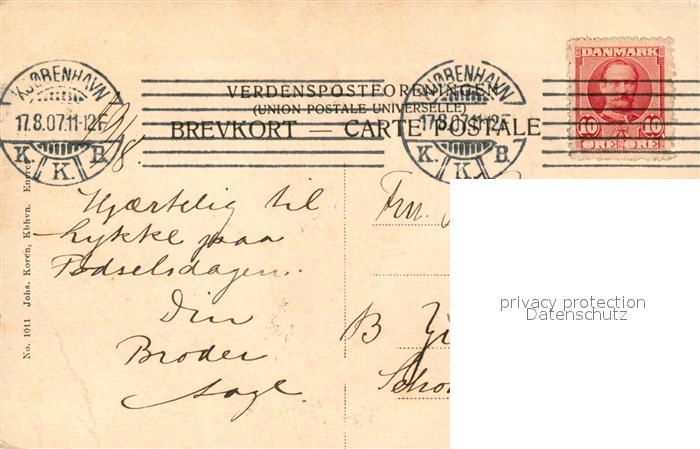 KJØBENHAVN
17.8.07.11-12F
K. K. B.
VERDENSPOSTFORENINGEN
(UNION POSTALE UNIVERSELLE)
BREVKORT — CARTE POSTALE
KJØBENHAVN
17.8.07.11-12F
K. K. B.
DANMARK
10 10
ØRE ØRE
Hjærtelig til
Lykke paa
Fødselsdagen.
Din
Broder
Aage.
Fru.
B
No. 1011 Johs. Koren, Kbhvn.
privacy protection
Datenschutz